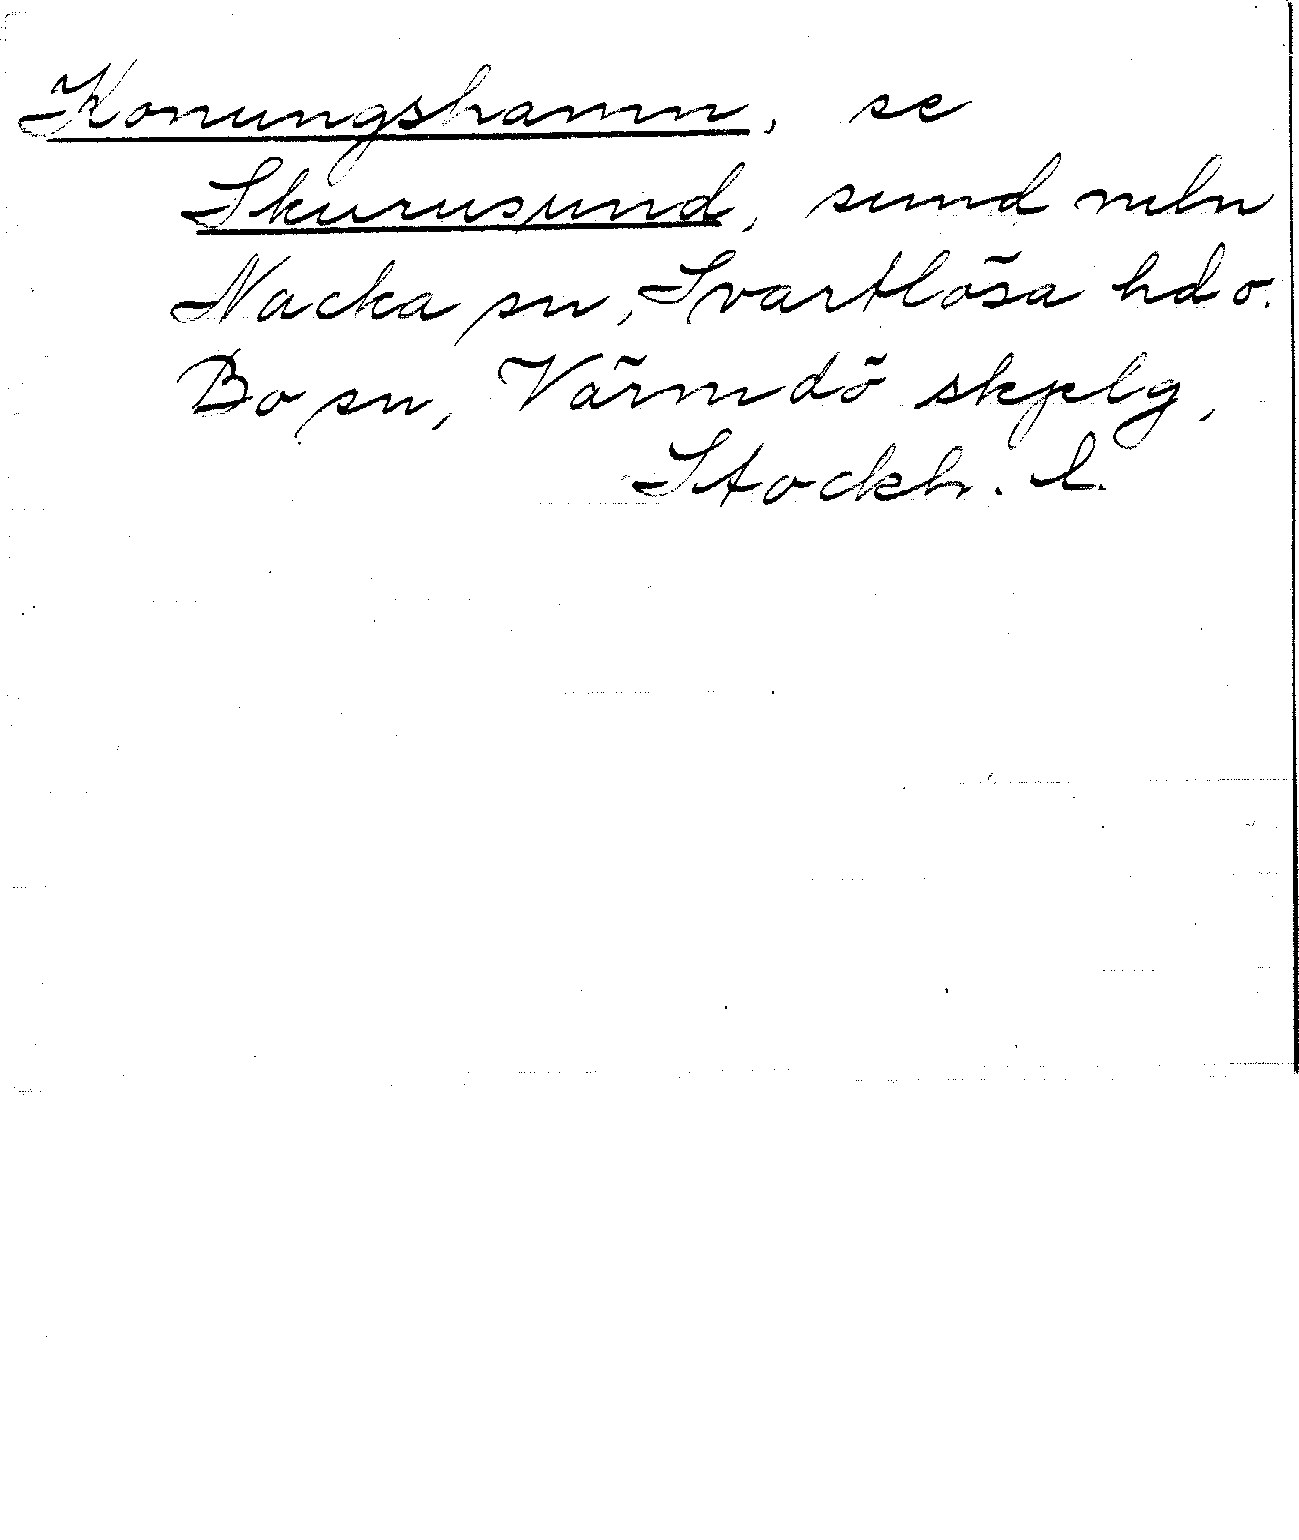 Konungshamn, se
Skurusund, sund mln
Nacka sn, Svartlösa hd o.
Bo sn, Värmdö skplg,
Stockh. l.